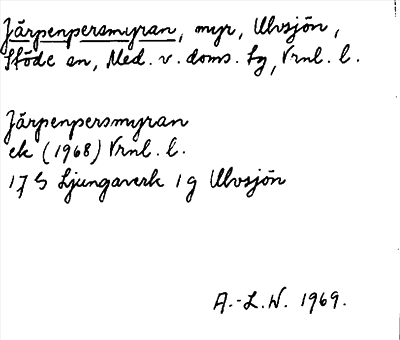 Järpenpersmyran, myr, Ulvsjön,
Stöde sn, Med. v. doms. tg, Vrnl. l.
Järpenpersmyran
ek (1968) Vrnl. l.
17 G Ljungaverk 1 g Ulvsjön
A.-L.W. 1969.